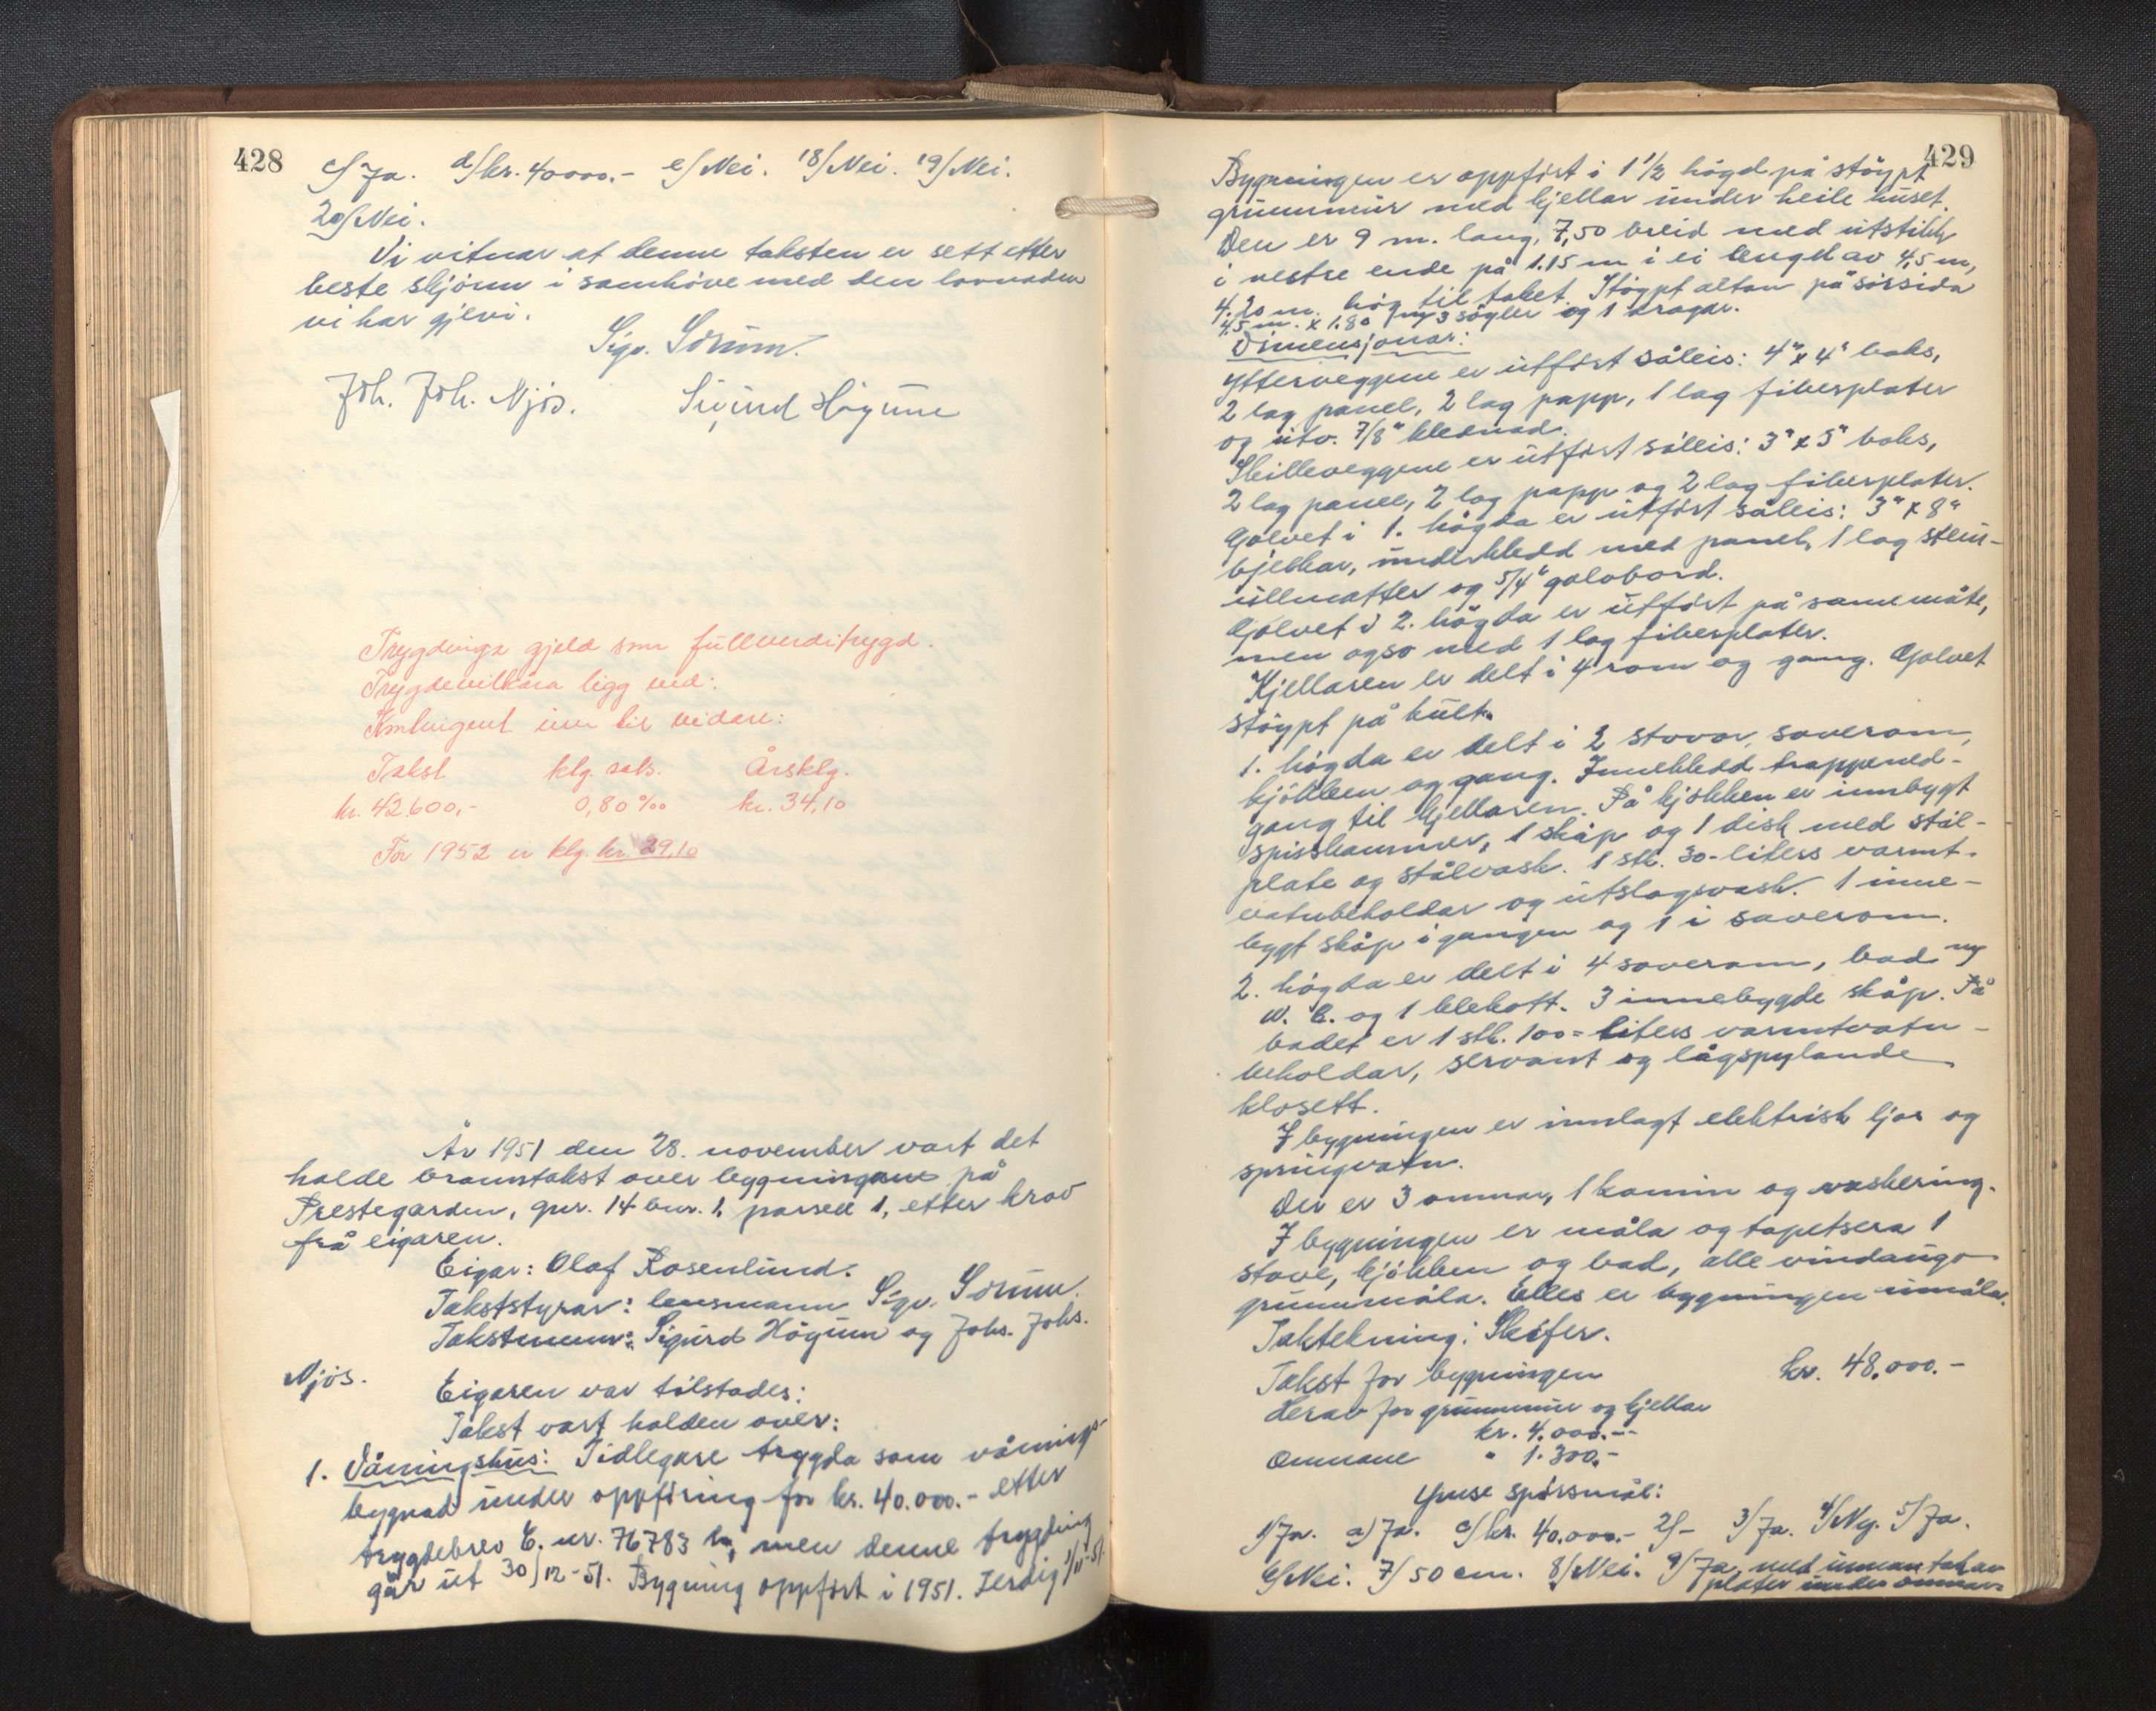 428
c/ Ja. d/ kr. 40000.- e/ Nei. 18/ Nei. 19/ Nei.
20/ Nei.
Vi vitnar at denne taksten er sett etter
beste skjönn i samhöve med den lovnaden
vi har gjevi.
Sigv. Sörum.
Joh. Joh. Njös. Sigurd Högum
Trygdinga gjeld som fullverditrygd.
Trygdevilkåra ligg ved.
Kontingent inn til vidare:
Takst klg. sats. Årsklg.
kr. 42.600,- 0,80 ‰ kr. 34,10
For 1952 er klg. kr. 29,10
År 1951 den 28. november vart det
halde branntakst over bygningane på
Prestegarden, gnr. 14 bnr. 1, parsell 1, etter krav
frå eigaren.
Eigar: Olaf Rosenlund.
Takststyrar: lensmann Sigv. Sörum.
Takstmenn: Sigurd Högum og Johs. Johs.
Njös.
Eigaren var tilstades.
Takst vart halden over:
1. Våningshus: Tidlegare trygda som vånings-
bygnad under oppföring for kr. 40.000.- etter
trygdebrev E. nr. 76783 men denne trygding
går ut 30/12-51. Bygning oppfört i 1951. Ferdig 1/11-51.
429
Bygningen er oppfört i 1 1/2 högd på stöypt
grunnmur med kjellar under heile huset.
Den er 9 m. lang, 7,50 breid med utstikk
i vestre ende på 1.15 m i ei lengd av 4,5 m,
4.20 m. hög til taket. Stöypt altan på sörsida
4,5 m. x 1.80 m/ 3 söyler og 1 dragar.
Dimensjonar:
Ytterveggene er utfört såleis: 4" x 4" boks,
2 lag panel, 2 lag papp, 1 lag fiberplater
og utv. 7/8" klednad.
Skilleveggene er utfört såleis: 3" x 3" boks,
2 lag panel, 2 lag papp og 2 lag fiberplater.
Golvet i 1. högda er utfört såleis: 3" x 8"
bjelkar, underkledd med panel, 1 lag stein-
ullmatter og 5/4" golvbord.
Golvet i 2. högda er utfört på same måte,
men ogso med 1 lag fiberplater.
Kjellaren er delt i 4 rom og gang. Golvet
stöypt på kult.
1. högda er delt i 2 stovor, soverom,
kjökken og gang. Innekledd trappened-
gang til kjellaren. På kjökken er innbygt
spisskammer, 1 skåp og 1 disk med stål-
plate og stålvask. 1 stk. 30-liters varmt-
vatnbeholdar og utslagsvask. 1 inne-
bygt skåp i gangen og 1 i soverom.
2. högda er delt i 4 soverom, bad og
W. C. og 1 klekott. 3 innebygde skåp. På
badet er 1 stk. 100-liters varmtvatn-
beholdar, servant og lågspylande
klosett.
I bygningen er innlagt elektrisk ljos og
springvatn.
Der er 3 omnar, 1 kamin og vaskering.
I bygningen er måla og tapetsera 1
stove, kjökken og bad, alle vindaugo
grunnmåla. Elles er bygningen umåla.
Taktekning: Skifer.
Takst for bygningen kr. 48.000.-
Herav for grunnmur og kjellar
kr. 4.000.--
Omnane " 1.300.-
Ymse spörsmål:
1/ Ja. a) Ja. c/ kr. 40.000.- 2/- 3/ Ja. 4/ Ny. 5/ Ja.
6/ Nei. 7/ 50 cm. 8/ Nei. 9/ Ja, med unnantak av
plater under omnar